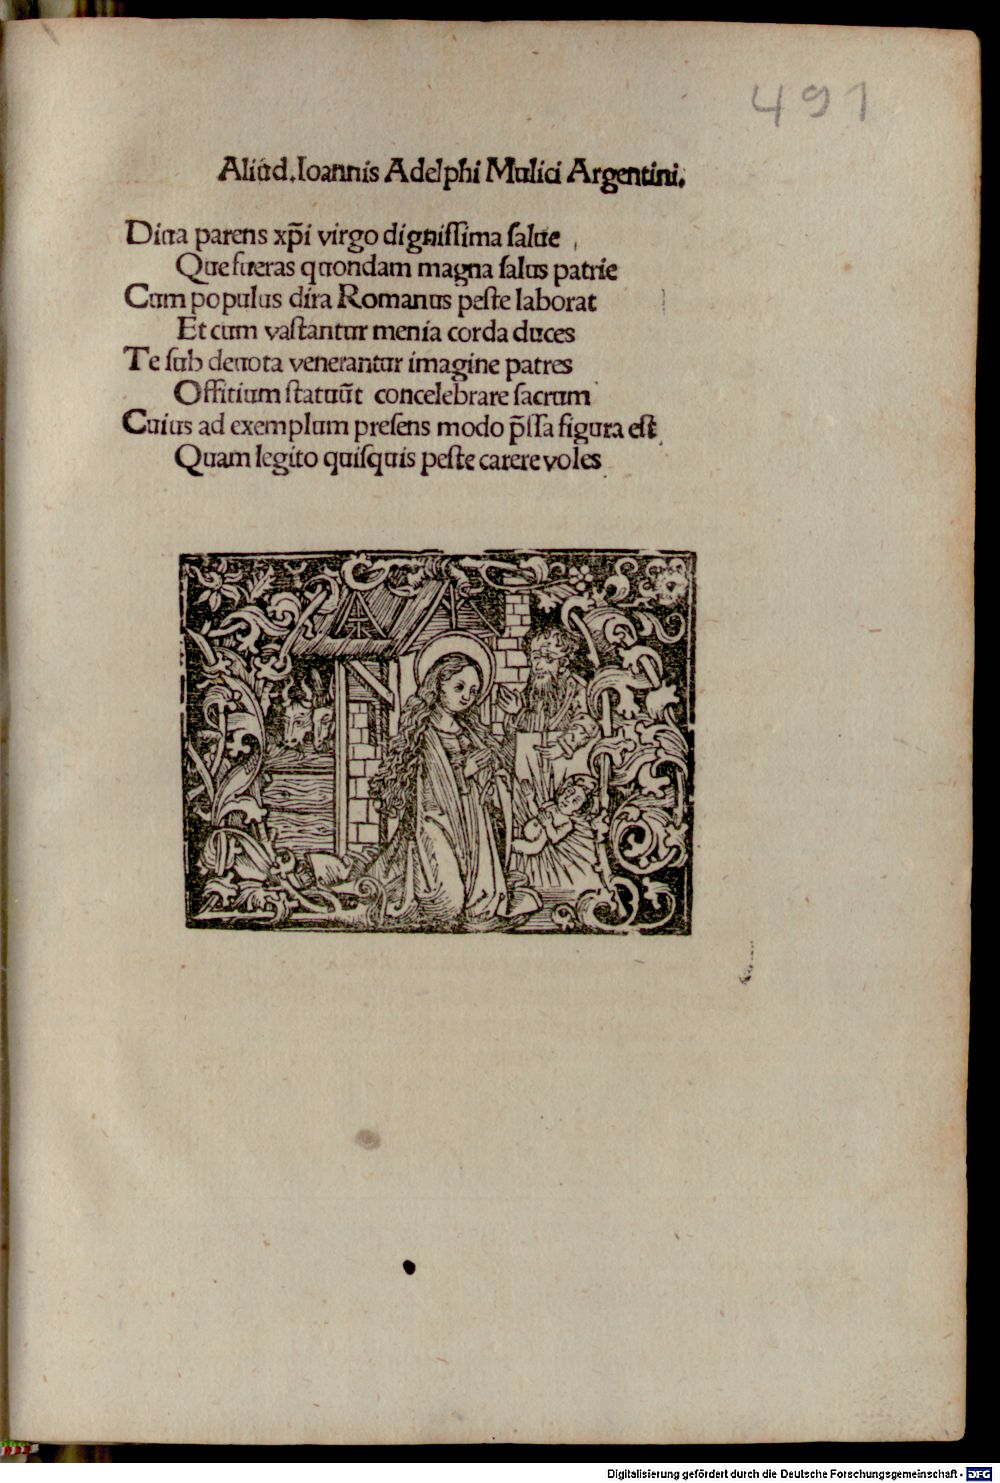 491
Aliud. Ioannis Adelphi Mulici Argentini.
Diua parens xp̄i virgo dignissima salue
Que fueras quondam magna salus patrie
Cum populus dira Romanus peste laborat
Et cum vastantur menia corda duces
Te sub deuota venerantur imagine patres
Offitium statuūt concelebrare sacrum
Cuius ad exemplum presens modo p̄ssa figura est
Quam legito quisquis peste carere voles
Digitalisierung gefördert durch die Deutsche Forschungsgemeinschaft - DFG